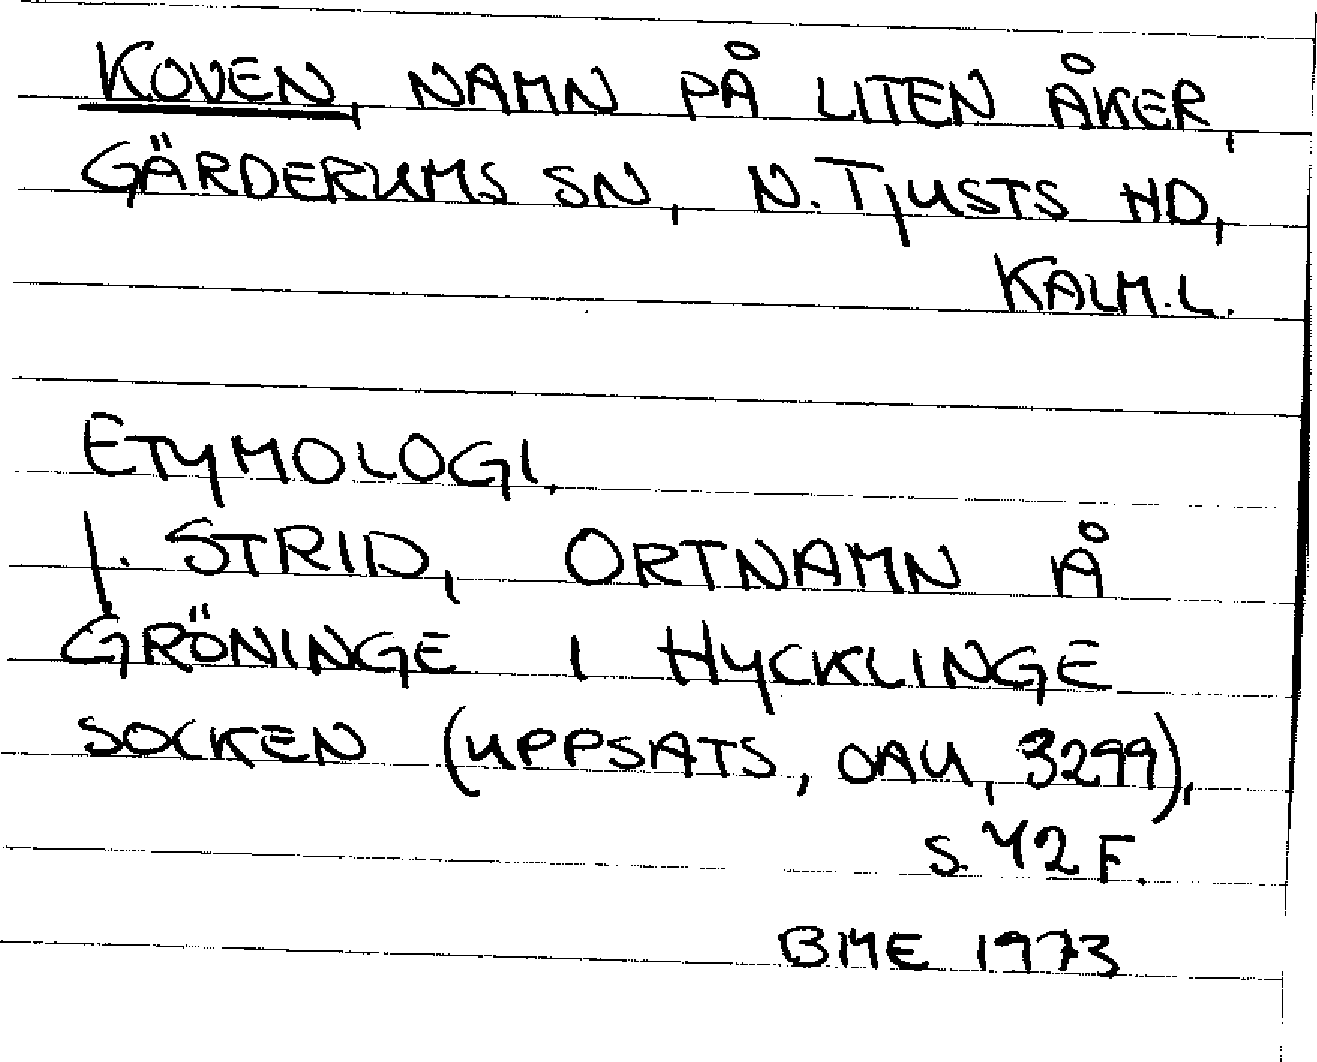 KOVEN, NAMN PÅ LITEN ÅKER,
GÄRDERUMS SN, N. TJUSTS HD,
KALM. L.
ETYMOLOGI.
J. STRID, ORTNAMN Å
GRÖNINGE I HYCKLINGE
SOCKEN (UPPSATS, OAU, 3299),
S. 42 F.
BME 1973